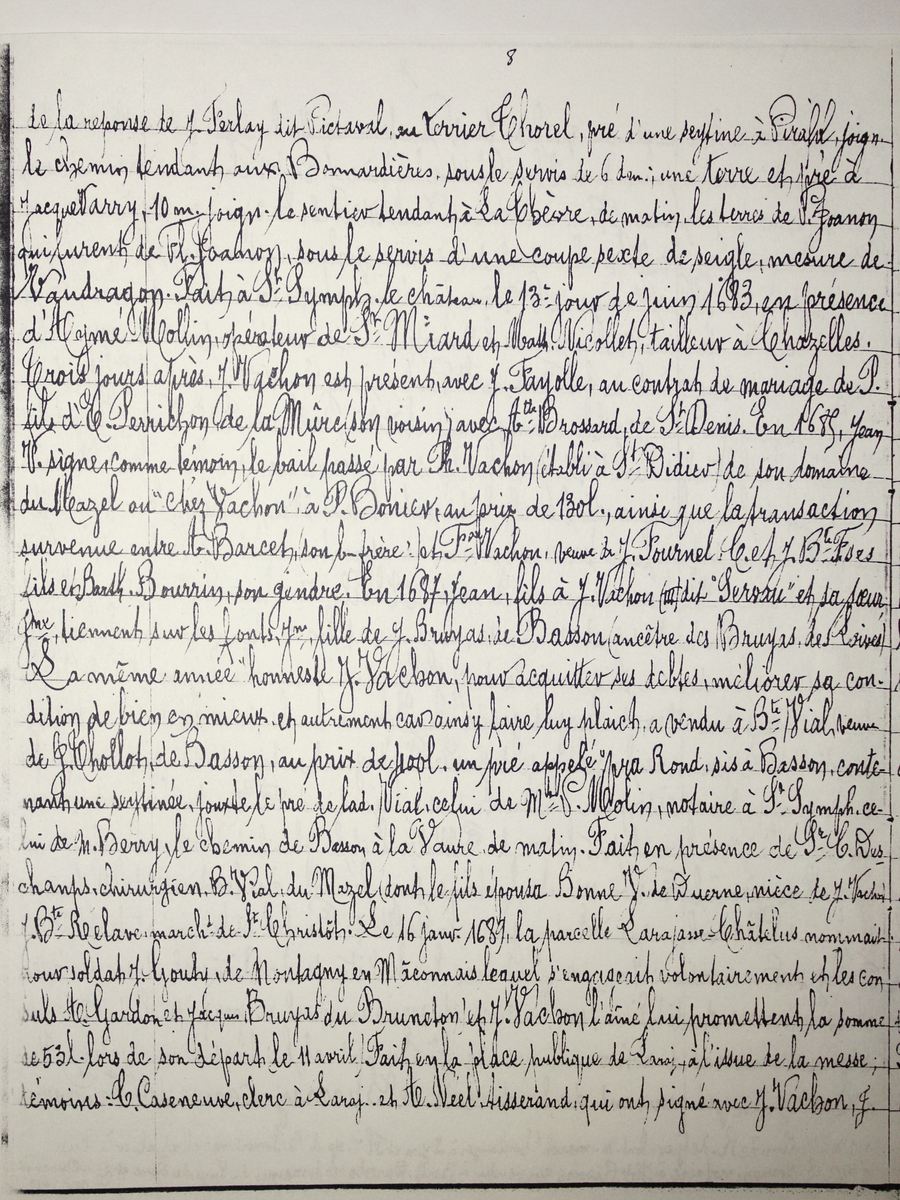 8
de la reponse de J. Ferlay dit Pictaval, au terrier Thorel, pré d'une seytine à Pirald, joign.
le chemin tendant aux Bonnardières, sous le servis de 6 den.; une terre et pré à
Jacque Varry, 10 m. joign. le sentier tendant à La Chèvre, de matin, les terres de P. Joanon
qui furent de Fl. Joanon, sous le servis d'une coupe sexte de seigle, mesure de
Vaudragon. Fait à St Symph. le château, le 13e jour de juin 1683, en présence
d'Aymé Mollin, opérateur de St Miard et Math. Nicollet, tailleur à Chazelles.
Trois jours après, J. Vachon est présent, avec J. Fayolle, au contrat de mariage de P.
fils d'E. Perrichon de la Mûre (son voisin) avec Atte Brossard, de St Denis. En 1685, Jean
V. signe, comme témoin, le bail passé par Ph. Vachon (établi à St Didier) de son domaine
du Mazel ou "chez Vachon" à P. Bonier, au prix de 130l., ainsi que la transaction
survenue entre A. Barcet, (son b-frère) et Fse Vachon, veuve de J. Fournel. C. et J. Bte Fses
fils et Barth. Bourrin, son gendre. En 1687, Jean, fils à J. Vachon dit "Servau" et sa sœur
Jne, tiennent sur les fonts, Jne, fille de J. Bruyas, de Basson (ancêtre des Bruyas, des Loives)
La même année "honneste J. Vachon, pour acquitter ses debtes, méliorer sa con-
dition de bien en mieux et autrement car ainsy faire luy plaich, a vendu à Bte Vial, veuve
de J. Chollot, de Basson, au prix de un pré appelé "pra Rond, sis à Basson, conte-
nant une seytinée, jouxte le pré de lad. Vial, celui de Me P. Molin, notaire à St Symph. ce-
lui de N. Berry, le chemin de Basson à la Vaure, de matin. Fait en présence de Sr C. Des-
champs, chirurgien, B. Vial, du Mazel (dont le fils épousa Bonne V. de Duerne, nièce de J. Vachon)
J. Bte Relave, marcht de St Christôt. Le 16 janv. 1689, la parcelle Larajasse-Châtelus nommait
pour soldat J. Gouty, de Montagny en Mâconnais lequel s'engageait volontairement et les con
suls A. Gardon et Jacques Bruyas du Bruneton et J. Vachon l'aîné lui promettent la somme
de 53l. lors de son départ le 11 avril. Fait en la place publique de Laraj., à l'issue de la messe;
témoins: C. Caseneuve, clerc à Laraj. et A. Néel tisserand, qui ont signé avec J. Vachon, J.